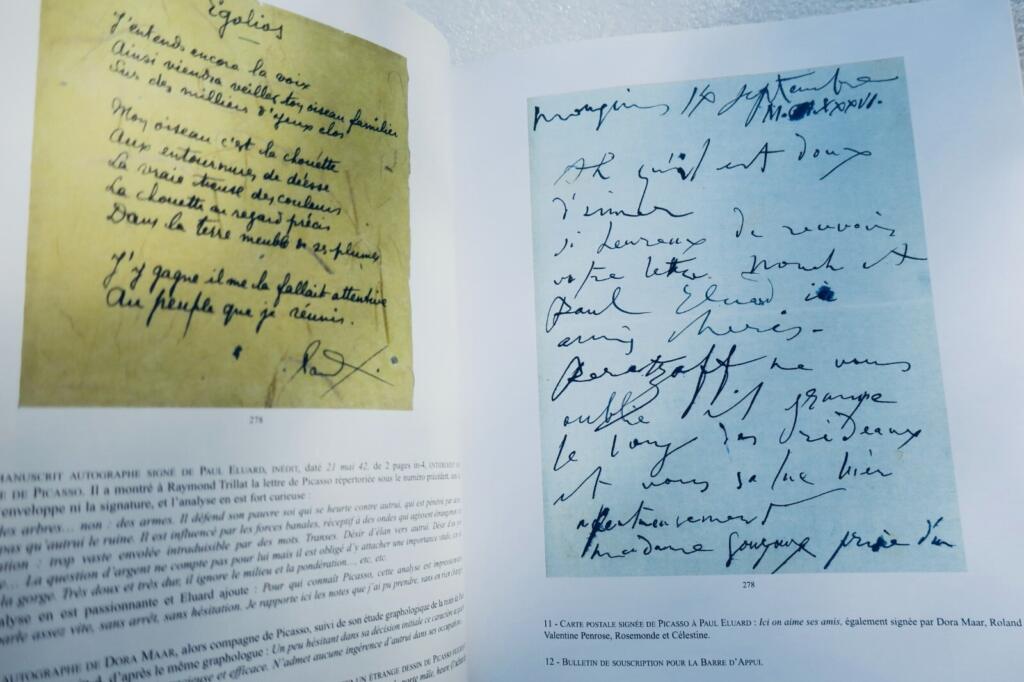 Egolios
J'entends encore la voix
Ainsi viendra veiller ton oiseau familier
Sur des milliers d'yeux clos
Mon oiseau c'est la chouette
Aux entournures de déesse
La vraie tteuse des couleurs
La chouette au regard précis
Dans la terre meuble de ses plumes
J'y gagne il me la fallait attentive
Au peuple que je réunis.
278
MANUSCRIT AUTOGRAPHE SIGNÉ DE PAUL ELUARD, INÉDIT, daté 21 mai 42, de 2 pages in-4,
E DE PICASSO. Il a montré à Raymond Trillat la lettre de Picasso répertoriée sous le numéro précédent,
l'enveloppe ni la signature, et l'analyse en est fort curieuse :
des arbres… non : des armes. Il défend son pauvre soi qui se heurte contre autrui, qui est pénétré par
pas qu'autrui le ruine. Il est influencé par les forces banales, réceptif à des ondes qui agissent
ation : trop vaste envolée intraduisible par des mots. Transes. Désir d'élan vers autrui. Désir d'un
e… La question d'argent ne compte pas pour lui mais il est obligé d'y attacher une importance vitale,
la gorge. Très doux et très dur, il ignore le milieu et la pondération… etc. etc.
alyse en est passionnante et Eluard ajoute : Pour qui connaît Picasso, cette analyse est
parle assez vite, sans arrêt, sans hésitation. Je rapporte ici les notes que j'ai pu prendre, sans en rien
AUTOGRAPHE DE DORA MAAR, alors compagne de Picasso, suivi de son étude graphologique de la main de
n-4, d'après le même graphologue : Un peu hésitant dans sa décision initiale ce caractère
et efficace. N'admet aucune ingérence d'autrui dans ses occupations.
UN ÉTRANGE DESSIN DE PICASSO
septembre
M. XXXVI.
Ah qu'il est doux
d'aimer
si heureux de recevoir
votre lettre. Nouch et
Paul Eluard
amis cheris-
ne vous
oublie et
le long des rideaux
et vous salue bien
affectueusement
madame
278
11 - CARTE POSTALE SIGNÉE DE PICASSO À PAUL ELUARD : Ici on aime ses amis, également signée par Dora Maar, Roland
Valentine Penrose, Rosemonde et Célestine.
12 - BULLETIN DE SOUSCRIPTION POUR LA BARRE D'APPUI.